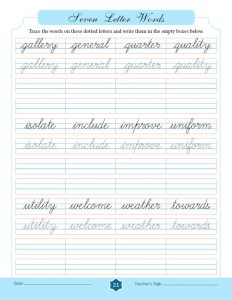 Seven Letter Words
Trace the words on these dotted letters and write them in the empty boxes below.
gallery general quarter quality
gallery general quarter quality
isolate include improve uniform
isolate include improve uniform
utility welcome weather towards
utility welcome weather towards
Date: 21 Teacher's Sign